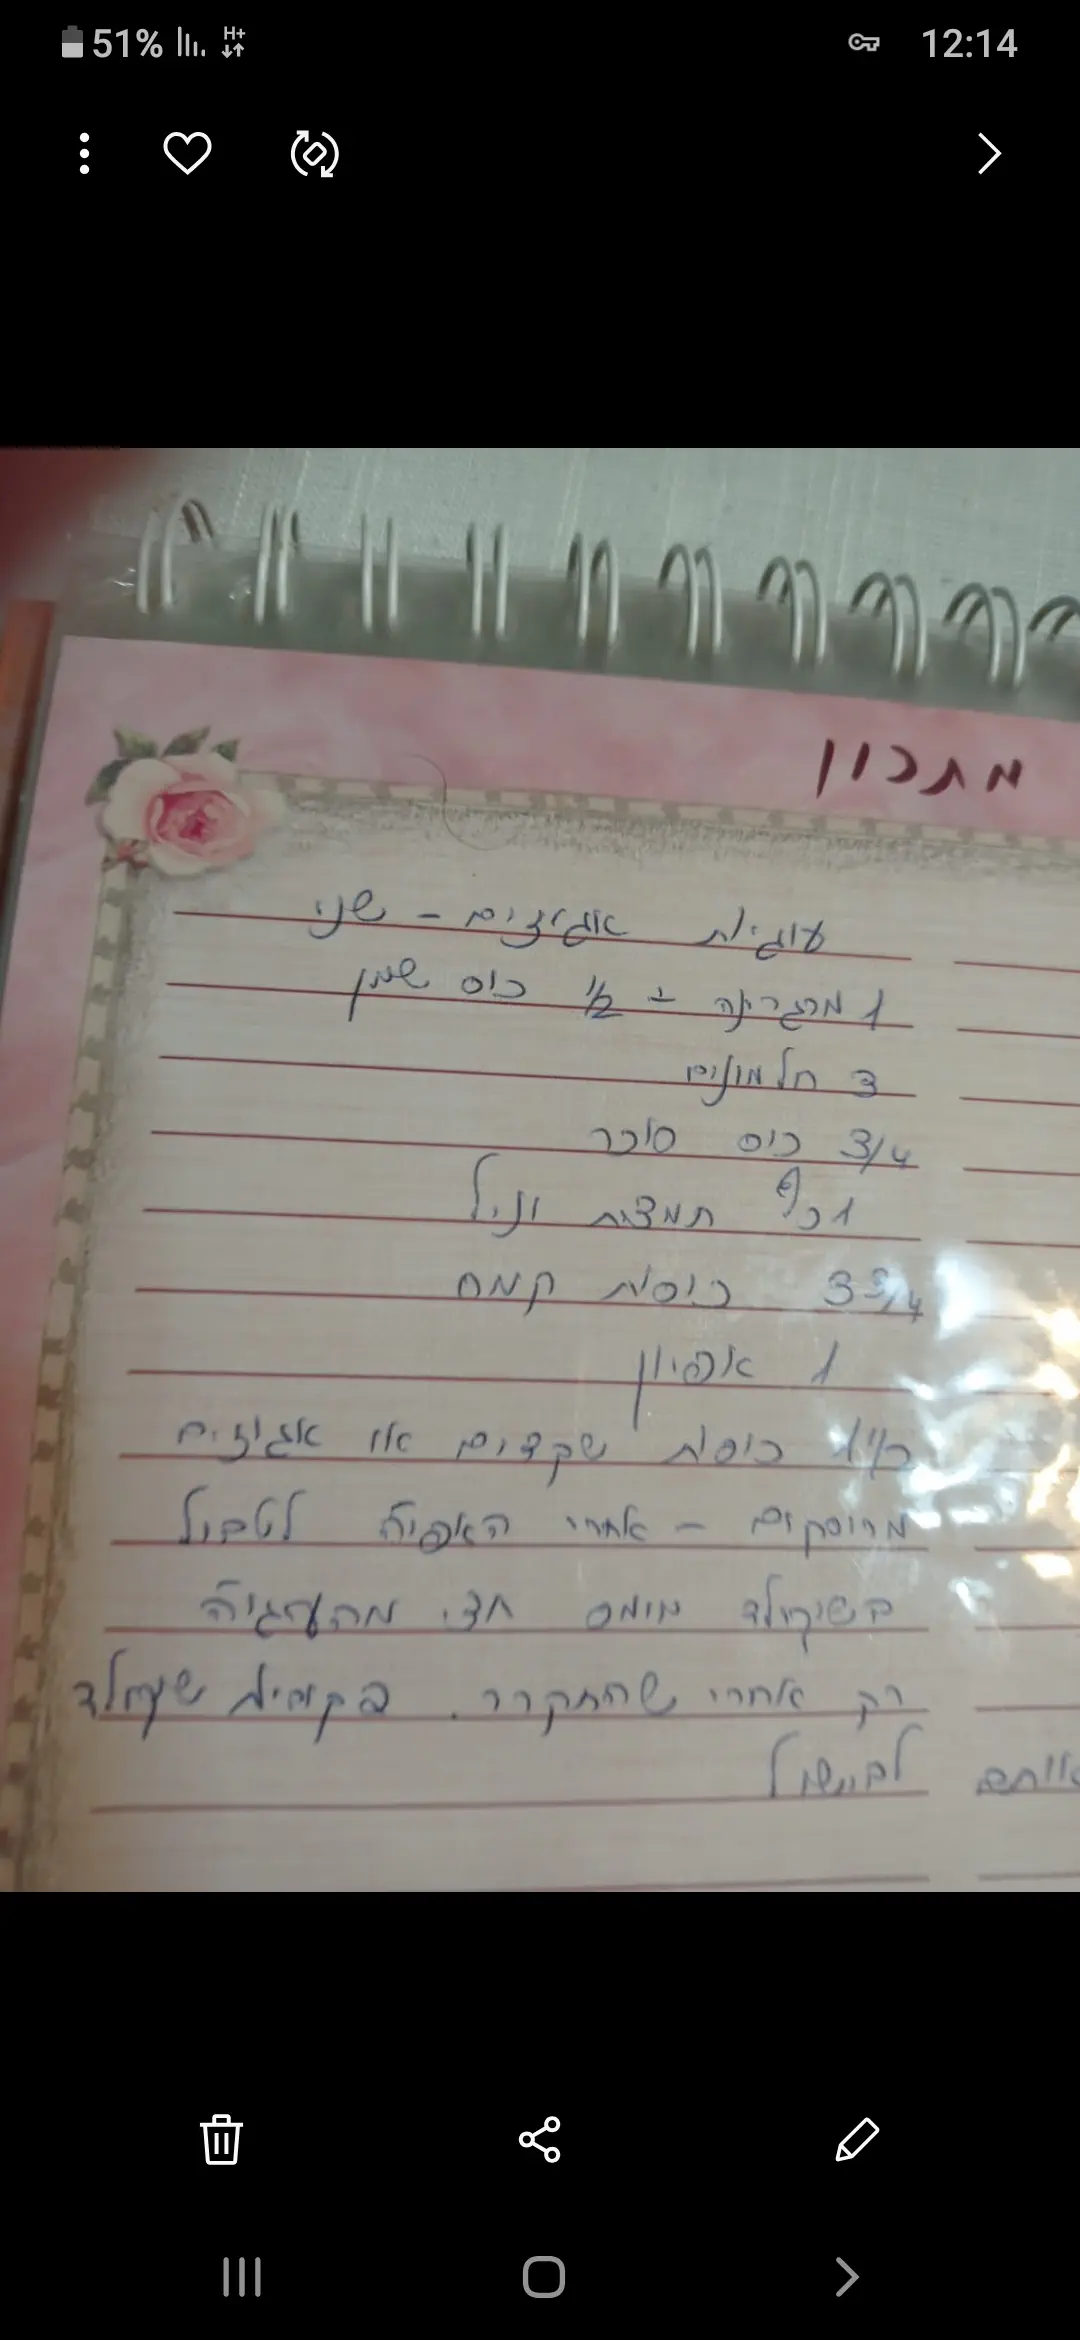 51% H+ 12:14
מתכון
עוגיות אגוזים - שני
1 מרגרינה - 1/2 כוס שמן
3 חלמונים
3/4 כוס סוכר
1 כף תמצית וניל
3 3/4 כוסות קמח
1 אפיון
כוסות שקדים או אגוזים
מרוסקים - אחרי האפיה לטבול
בשוקולד מומס חצי מהעוגיה
רק אחרי שהתקרר.
לבישול